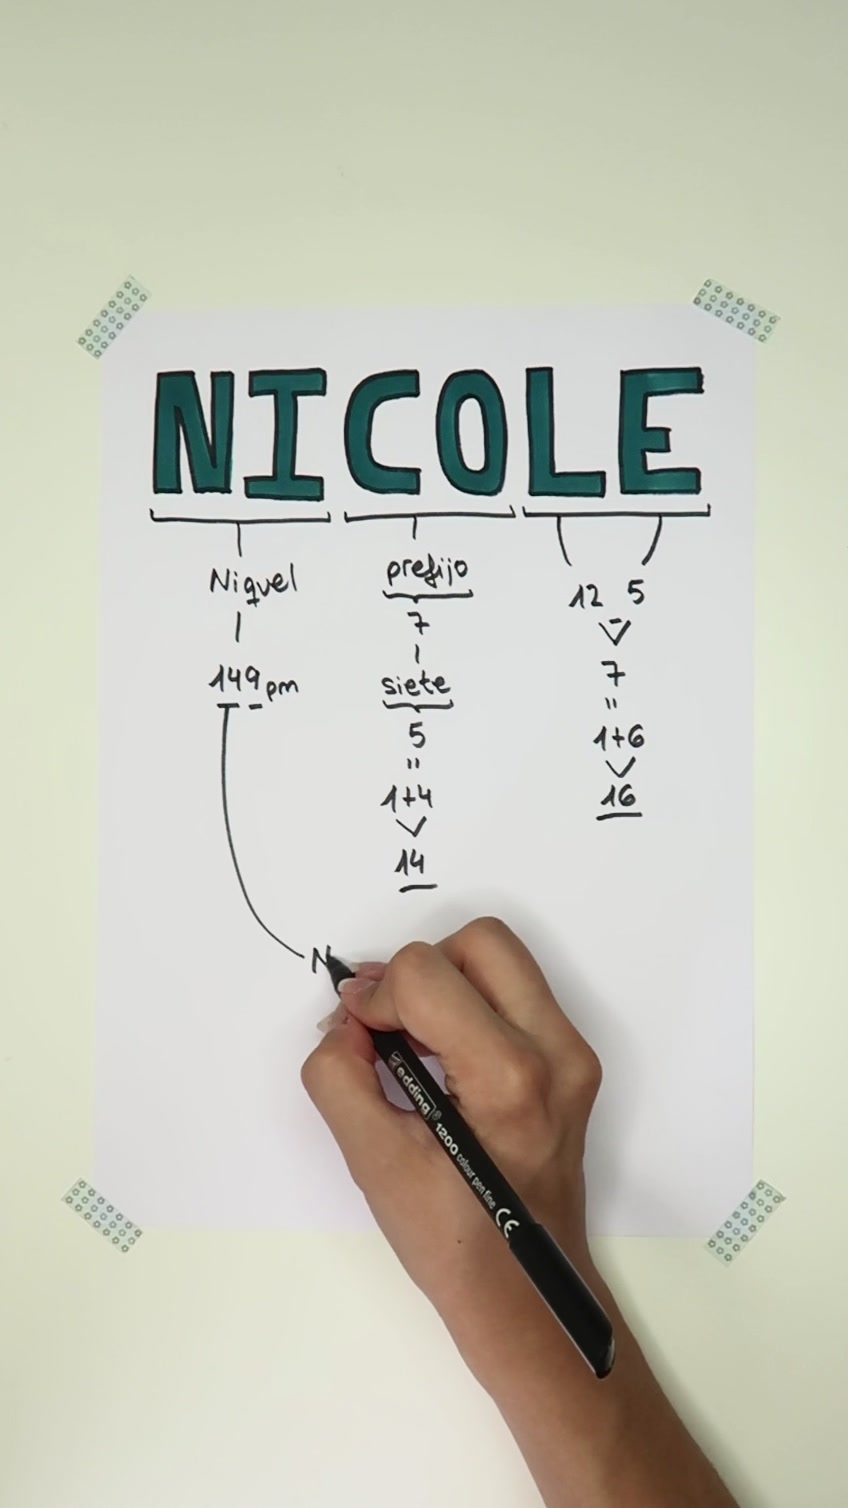 NICOLE
Niquel
149pm
prefijo
7
siete
5
"
1+4
14
12 5
7
"
1+6
16
N
edding® 1200 colour pen fine CE